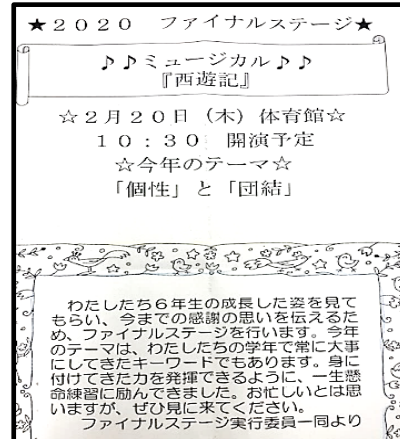 ★２０２０　ファイナルステージ★
♪♪ミュージカル♪♪
『西遊記』
☆２月２０日（木）体育館☆
１０：３０　開演予定
☆今年のテーマ☆
「個性」と「団結」
わたしたち６年生の成長した姿を見て
もらい、今までの感謝の思いを伝えるた
め、ファイナルステージを行います。今年
のテーマは、わたしたちの学年で常に大事
にしてきたキーワードでもあります。身に
付けてきた力を発揮できるように、一生懸
命練習に励んできました。お忙しいとは思
いますが、ぜひ見に来てください。
ファイナルステージ実行委員一同より